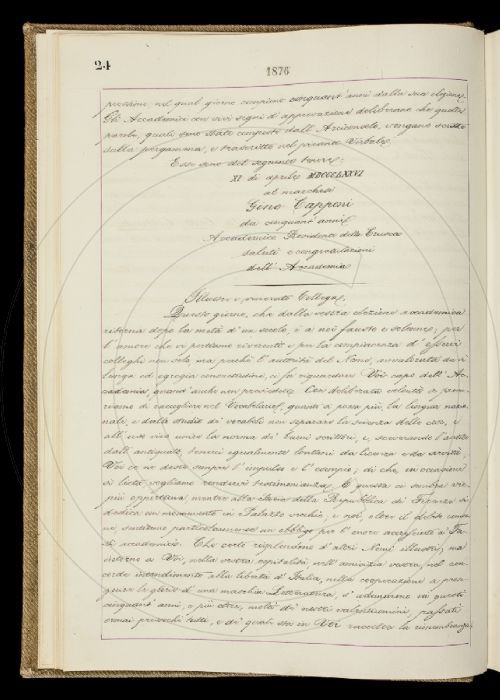 24
1876
pressione, nel qual giorno compiono cinquant'anni dalla sua elezione.
Gli Accademici con vivi segni di approvazione deliberano che queste
parole, quali sono state composte dall'Arciconsolo, vengano scritte
sulla pergamena, e trascritte nel presente Verbale.
Esse sono del seguente tenore:
XI di aprile MDCCCLXXVI
al marchese
Gino Capponi
da cinquant'anni
Accademico Residente della Crusca
saluti e congratulazioni
dell'Accademia
Illustre e venerato Collega,
Questo giorno, che dalla vostra elezione accademica
ritorna dopo la metà d'un secolo, è a noi fausto e solenne; per
l'amore che vi portiamo riverente e per la compiacenza d'esservi
colleghi non solo, ma perchè l'autorità del Nome, avvalorata da sì
lunga ed egregia concittadini, ci fa riguardare Voi capo dell'Ac-
cademia, quand'anche non presidente. Con deliberata volontà
di raccogliere nel Vocabolario, quanto si possa più la lingua nazio-
nale, e dallo studio de' vocaboli non separare la scienza delle cose, e
all'uso vivo unire la norma de' buoni scrittori, e, sceverando l'antico
dall'antiquato, tenerci egualmente lontani da licenza e da servitù;
Voi ce ne deste sempre l'impulso e l'esempio; di che in occasione
sì lieta vogliamo rendervi testimonianza. E questa ci sembra vie-
più opportuna, mentre allo storico della Repubblica di Firenze si
dedica un monumento in Palazzo vecchio; e noi, oltre il debito comu-
ne, sentiamo particolarmente un obbligo per l'onore accresciuto a' Fa-
sti accademici. Che certo risplendono d'altri Nomi illustri; ma
intorno a Voi, nella vostra ospitalità, nell'amicizia vostra, nel con-
corde intendimento alla libertà d'Italia, nella cooperazione a prose-
guire le glorie d'una maschia Letteratura, s'adunarono in questi
cinquant'anni, e più oltre, molti di nostri valentuomini, passati
ormai pressochè tutti, e de' quali sta in Voi raccolta la rimembranza,